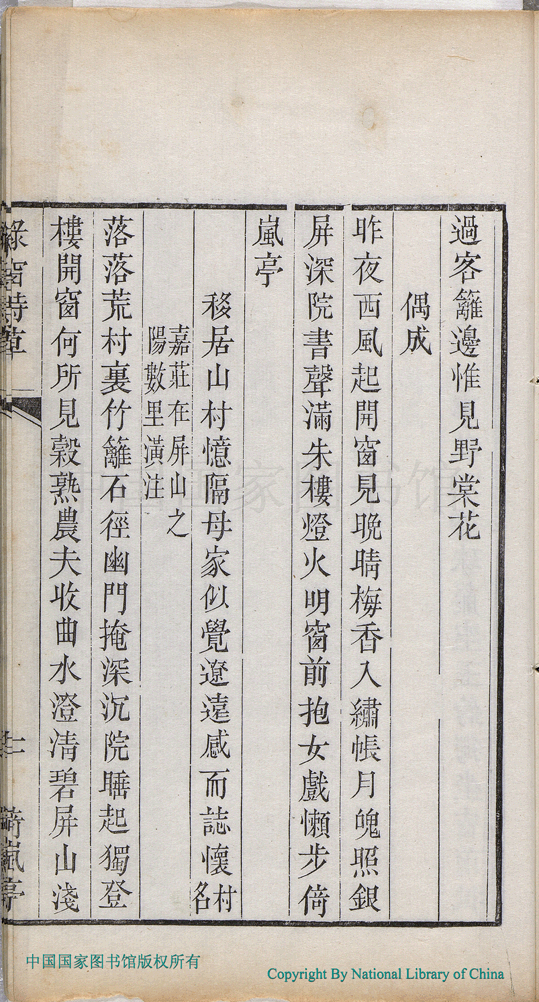 過客籬邊惟見野棠花
偶成
昨夜西風起開窗見晚晴梅香入繡帳月魄照銀
屏深院書聲滿朱樓燈火明窗前抱女戲懶步倚
嵐亭
移居山村憶隔母家似覺遼遠感而誌懷村名
嘉莊在屏山之
陽數里潢注
落落荒村裏竹籬石徑幽門掩深沉院睡起獨登
樓開窗何所見穀熟農夫收曲水澄清碧屏山淺
綠窗詩草
十一
倚嵐亭
中国国家图书馆
中国国家图书馆版权所有
Copyright By National Library of China